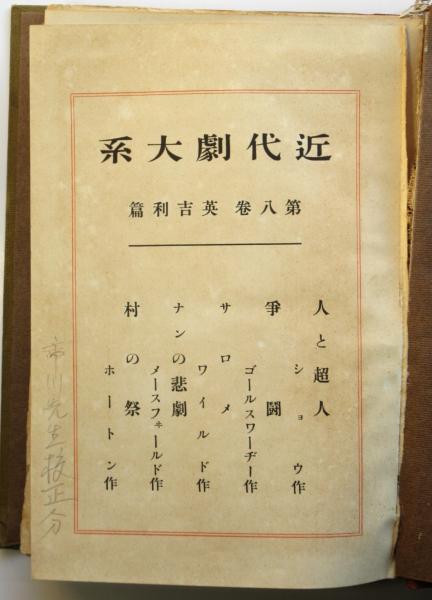 近代劇大系
第八卷 英吉利篇
人と超人
ショウ作
爭鬪
ゴールスワーヂー作
サロメ
ワイルド作
ナンの悲劇
メースフ𛅥ールド作
村の祭
ホートン作
市川先生校正分